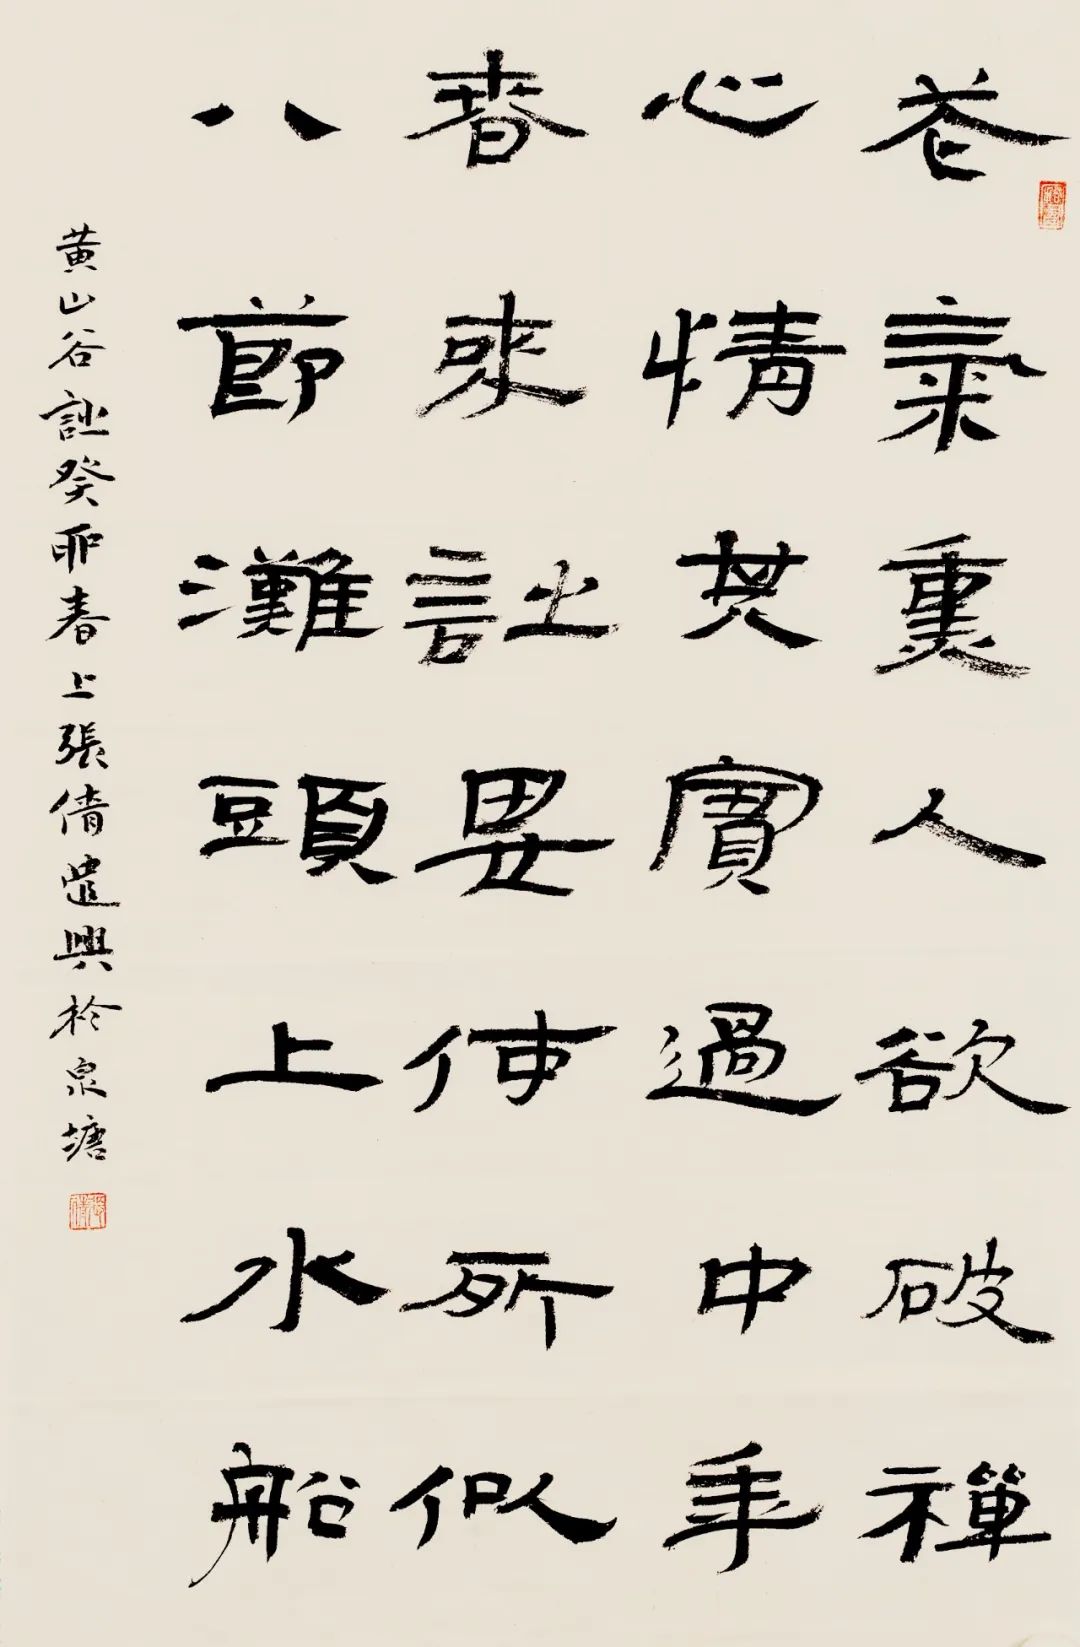 花氣熏人欲破禪
心情其實過中年
春來詩思何所似
八節灘頭上水船
黃山谷詩癸卯春上張倩遣興於泉塘